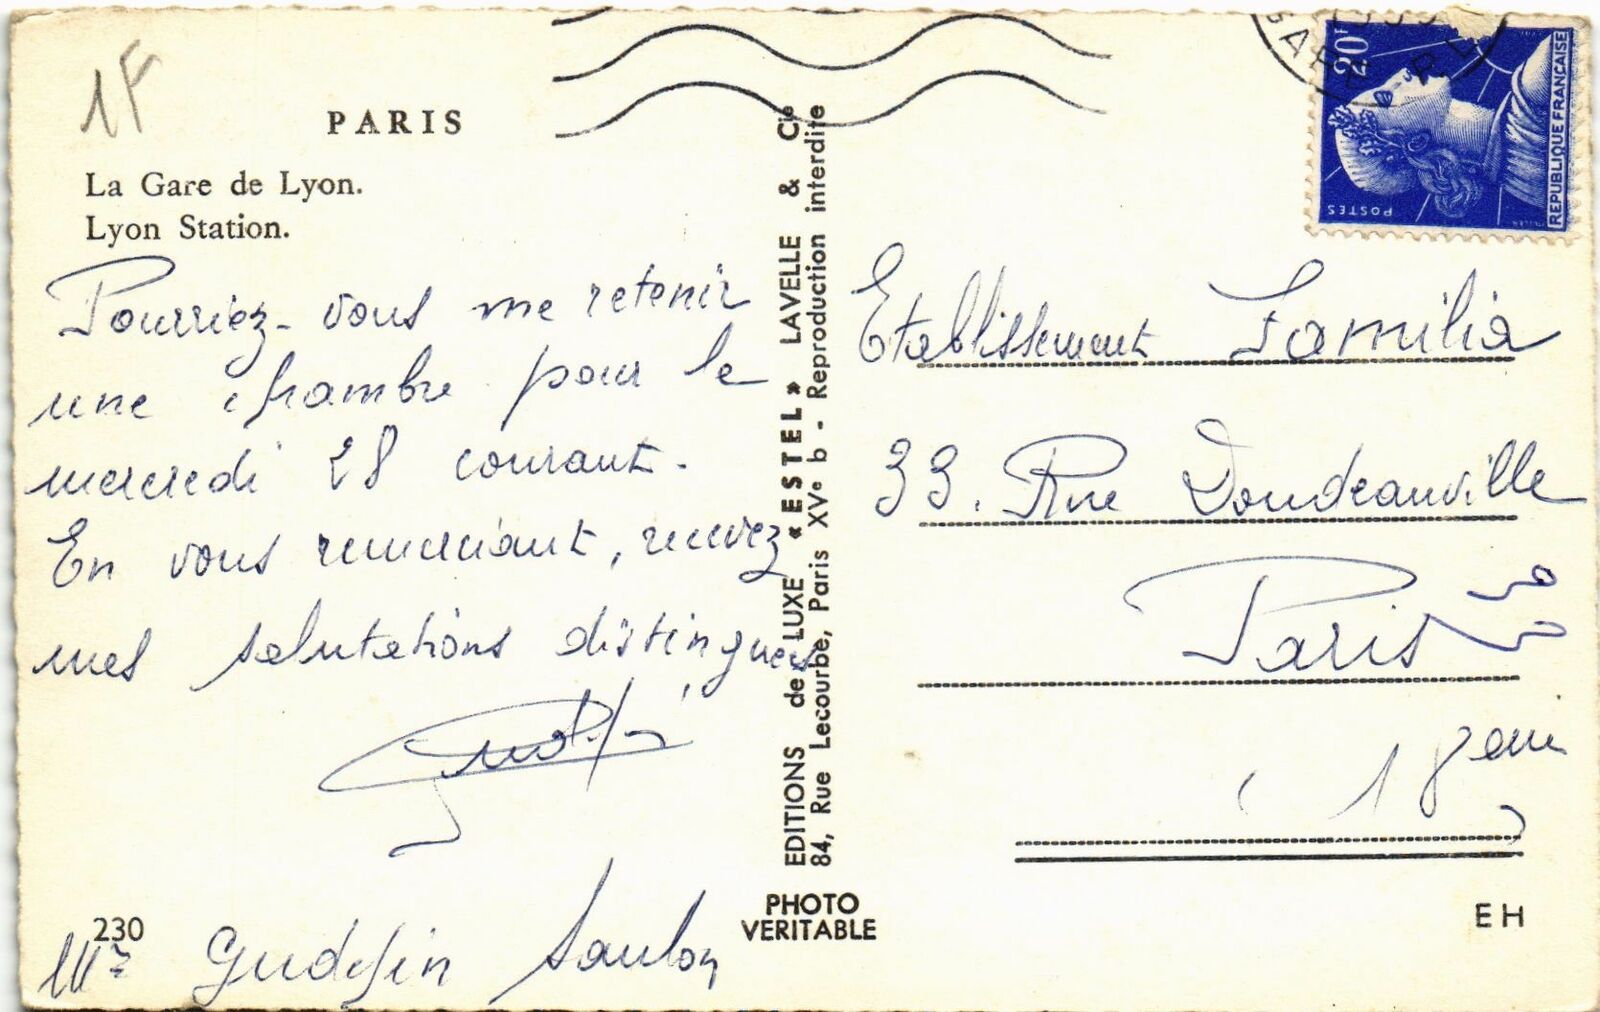 1F
PARIS
La Gare de Lyon.
Lyon Station.
Pourriez-vous me retenir
une chambre pour le
mercredi 28 courant.
En vous remerciant, recevez
mes salutations distinguées
230
Mr
EDITIONS de LUXE « ESTEL » LAVELLE & Cie
84, Rue Lecourbe, Paris XVe b - Reproduction interdite
PHOTO
VERITABLE
20F
POSTES
REPUBLIQUE FRANÇAISE
Etablissement Familia
33. Rue Doudeauville
Paris
18eme
EH